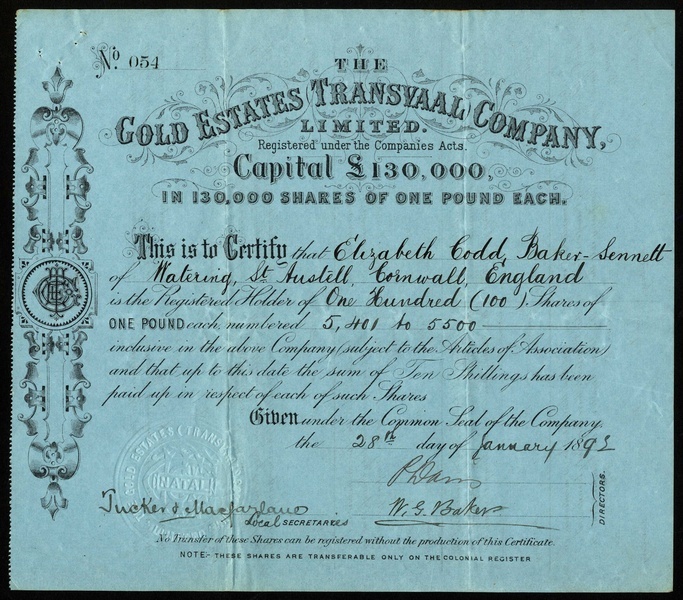 No. 054
THE
GOLD ESTATES TRANSVAAL COMPANY,
LIMITED.
Registered under the Companies Acts.
Capital £130,000,
IN 130,000 SHARES OF ONE POUND EACH.
This is to Certify that Elizabeth Codd, Baker-Sennett
of Watering, St. Austell, Cornwall, England
is the Registered Holder of One Hundred (100) Shares of
ONE POUND each, numbered 5,401 to 5500
inclusive in the above Company (subject to the Articles of Association)
and that up to this date the sum of Ten Shillings has been
paid up in respect of each of such Shares
Given under the Common Seal of the Company,
the 28th day of January 1892
W. G. Baker
DIRECTORS.
Tucker & Macfarlane
Local SECRETARIES
GOLD ESTATES (TRANSVAAL
NATAL
No Transfer of these Shares can be registered without the production of this Certificate.
NOTE:- THESE SHARES ARE TRANSFERABLE ONLY ON THE COLONIAL REGISTER